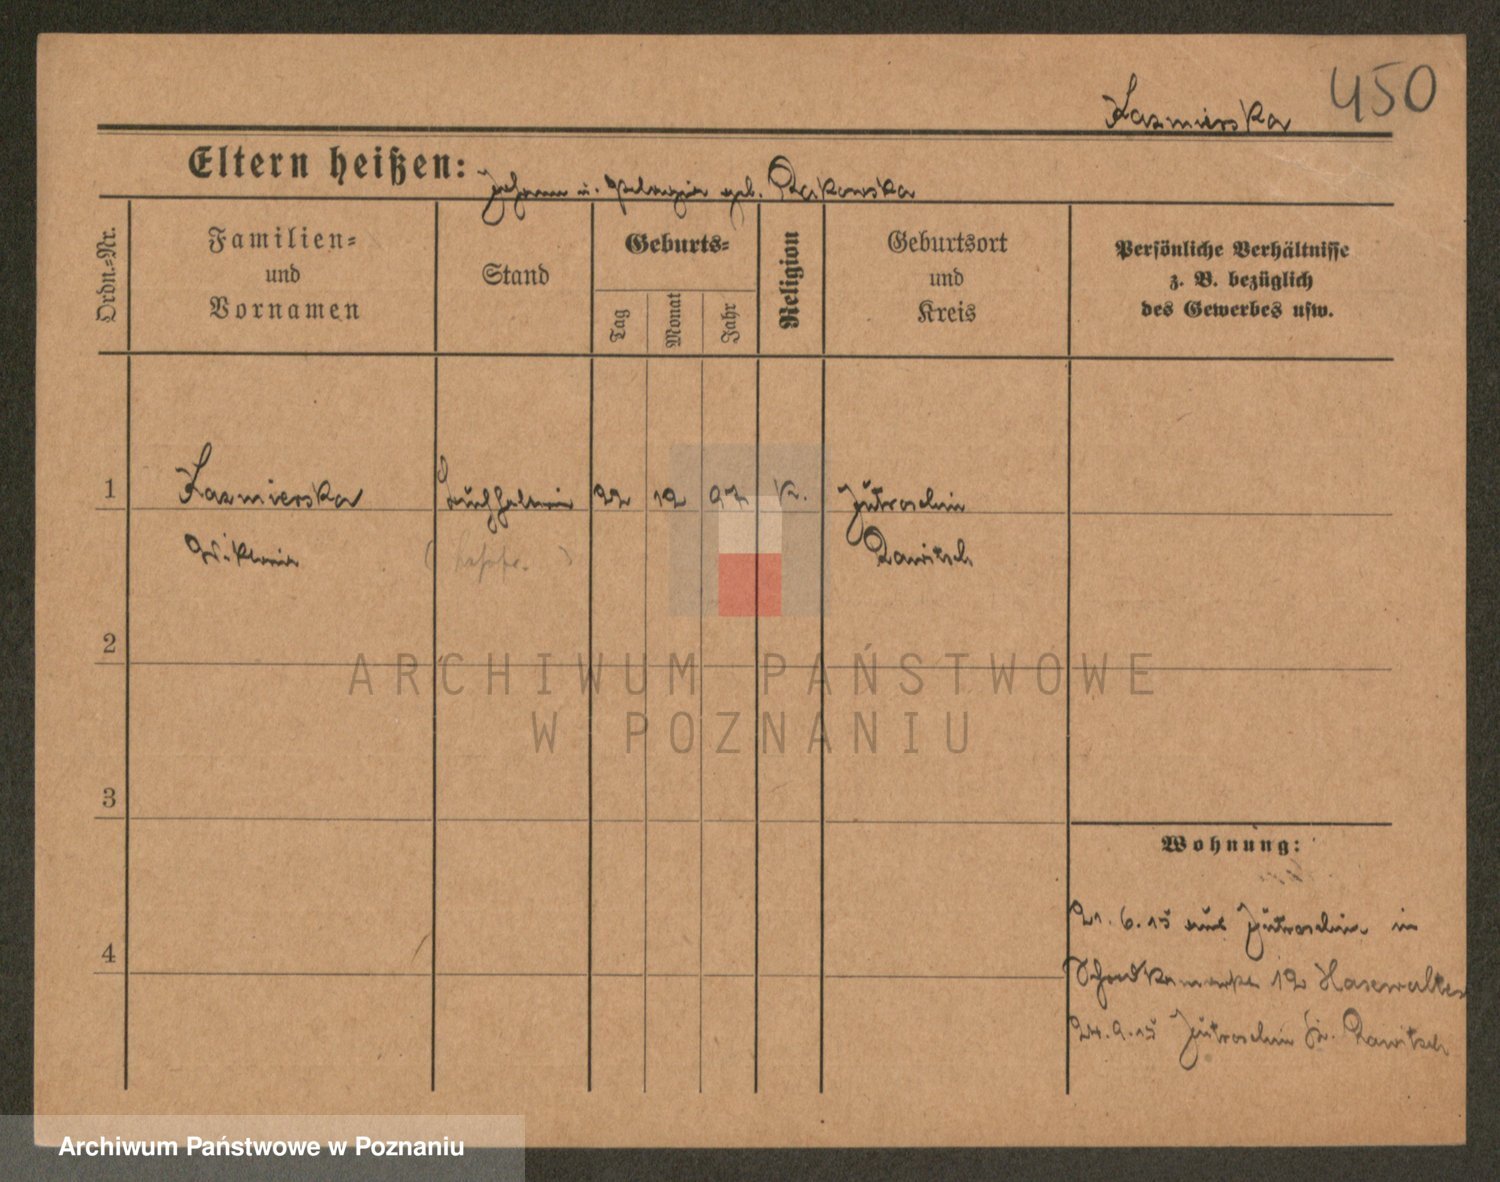 450
Kazmierska
Eltern heißen: Johann u. Pelagia geb. Rakowska
Ordn.-Nr.
Familien-
und
Vornamen
Stand
Geburts-
Tag
Monat
Jahr
Religion
Geburtsort
und
Kreis
Persönliche Verhältnisse
z. B. bezüglich
des Gewerbes usw.
1 Kazmierska Buchhalterin 22 12 97 K. Jutroschin
Wiktoria Rawitsch
2
ARCHIWUM PAŃSTWOWE
W POZNANIU
3
Wohnung:
21.6.15 aus Jutroschin in
4
12 Hasewalter
24.9.15 Jutroschin Kr. Rawitsch
Archiwum Państwowe w Poznaniu